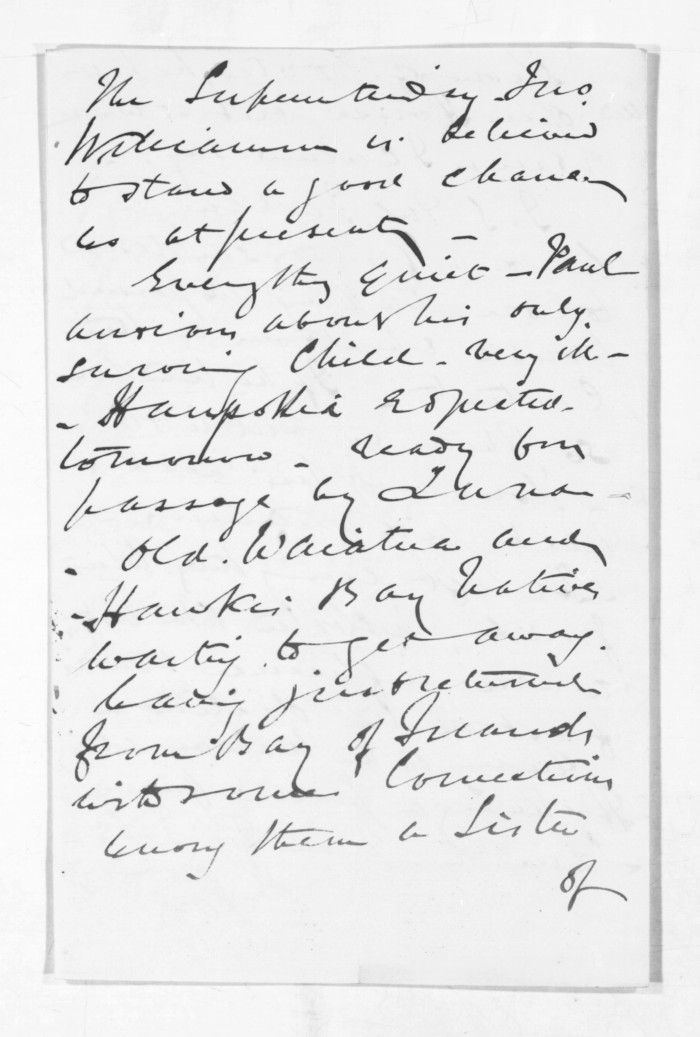 The Superintendency Jno.
Williamson is believed
to stand a good chance
as at present –
Everything quiet – Paul
anxious about his only
surviving Child – very ill –
– expected
tomorrow – ready for
passage by Luna –
– Old Waiatua and
– Hawkes Bay Natives
waiting to get away.
having just returned
from Bay of Islands
with some Connections
among them a Sister
of